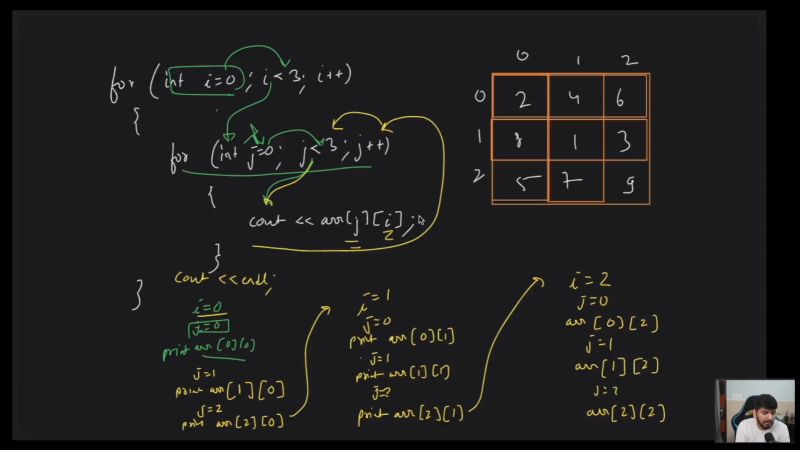 for (int i=0; i<3; i++)
{
for (int j=0; j<3; j++)
{
cout << arr[j][i];
2
}
cout <<endl;
}
0 1 2
0 2 4 6
1 8 1 3
2 5 7 9
i=0
j=0
print arr [0][0]
j=1
print arr [1][0]
j=2
print arr [2][0]
i=1
j=0
print arr [0][1]
j=1
print arr [1][1]
j=2
print arr [2][1]
i=2
j=0
arr [0][2]
j=1
arr [1][2]
j=2
arr [2][2]